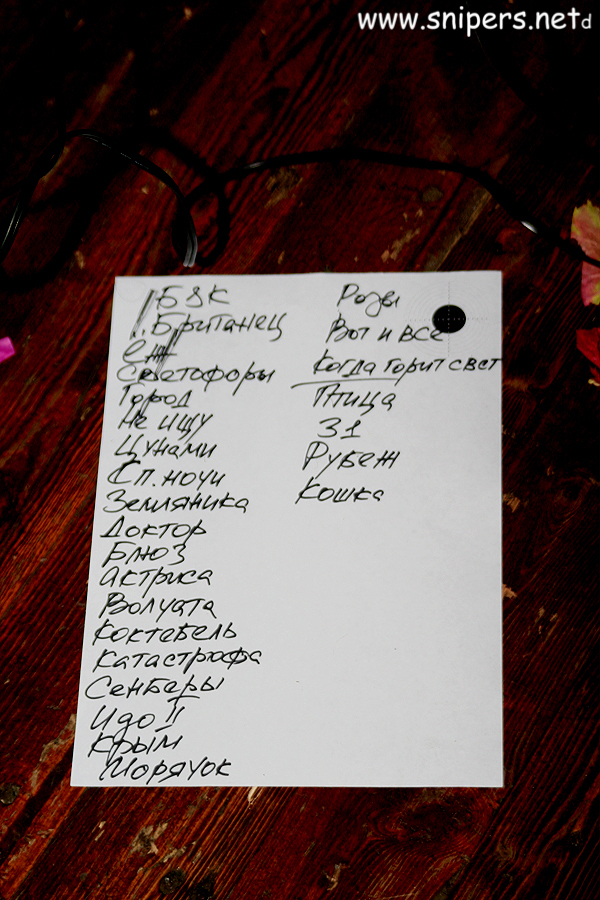 www.snipers.net
БДК
Британец
Ёж
Светофоры
Город
Не ищу
Цунами
Сп. ночи
Земляника
Доктор
Блюз
Актриса
Волчата
Коктебель
Катастрофа
Сенберы
Идо II
Крым
Морячок
Розы
Вот и все
Когда горит свет
Птица
31
Рубеж
Кошка